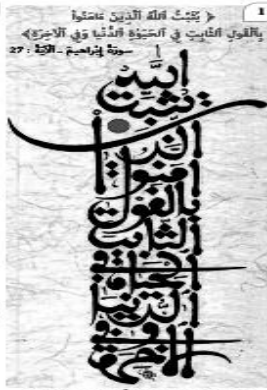 1
﴿ يُثَبِّتُ ٱللَّهُ ٱلَّذِينَ ءَامَنُوا۟
بِٱلْقَوْلِ ٱلثَّابِتِ فِي ٱلْحَيَوٰةِ ٱلدُّنْيَا وَفِي ٱلْآخِرَةِ ﴾
سورة إبراهيم - الآية : 27
الله
يثبت
الذين
آمنوا
بالقول
الثابت
في الحياة
الدنيا
وفي
الآخرة